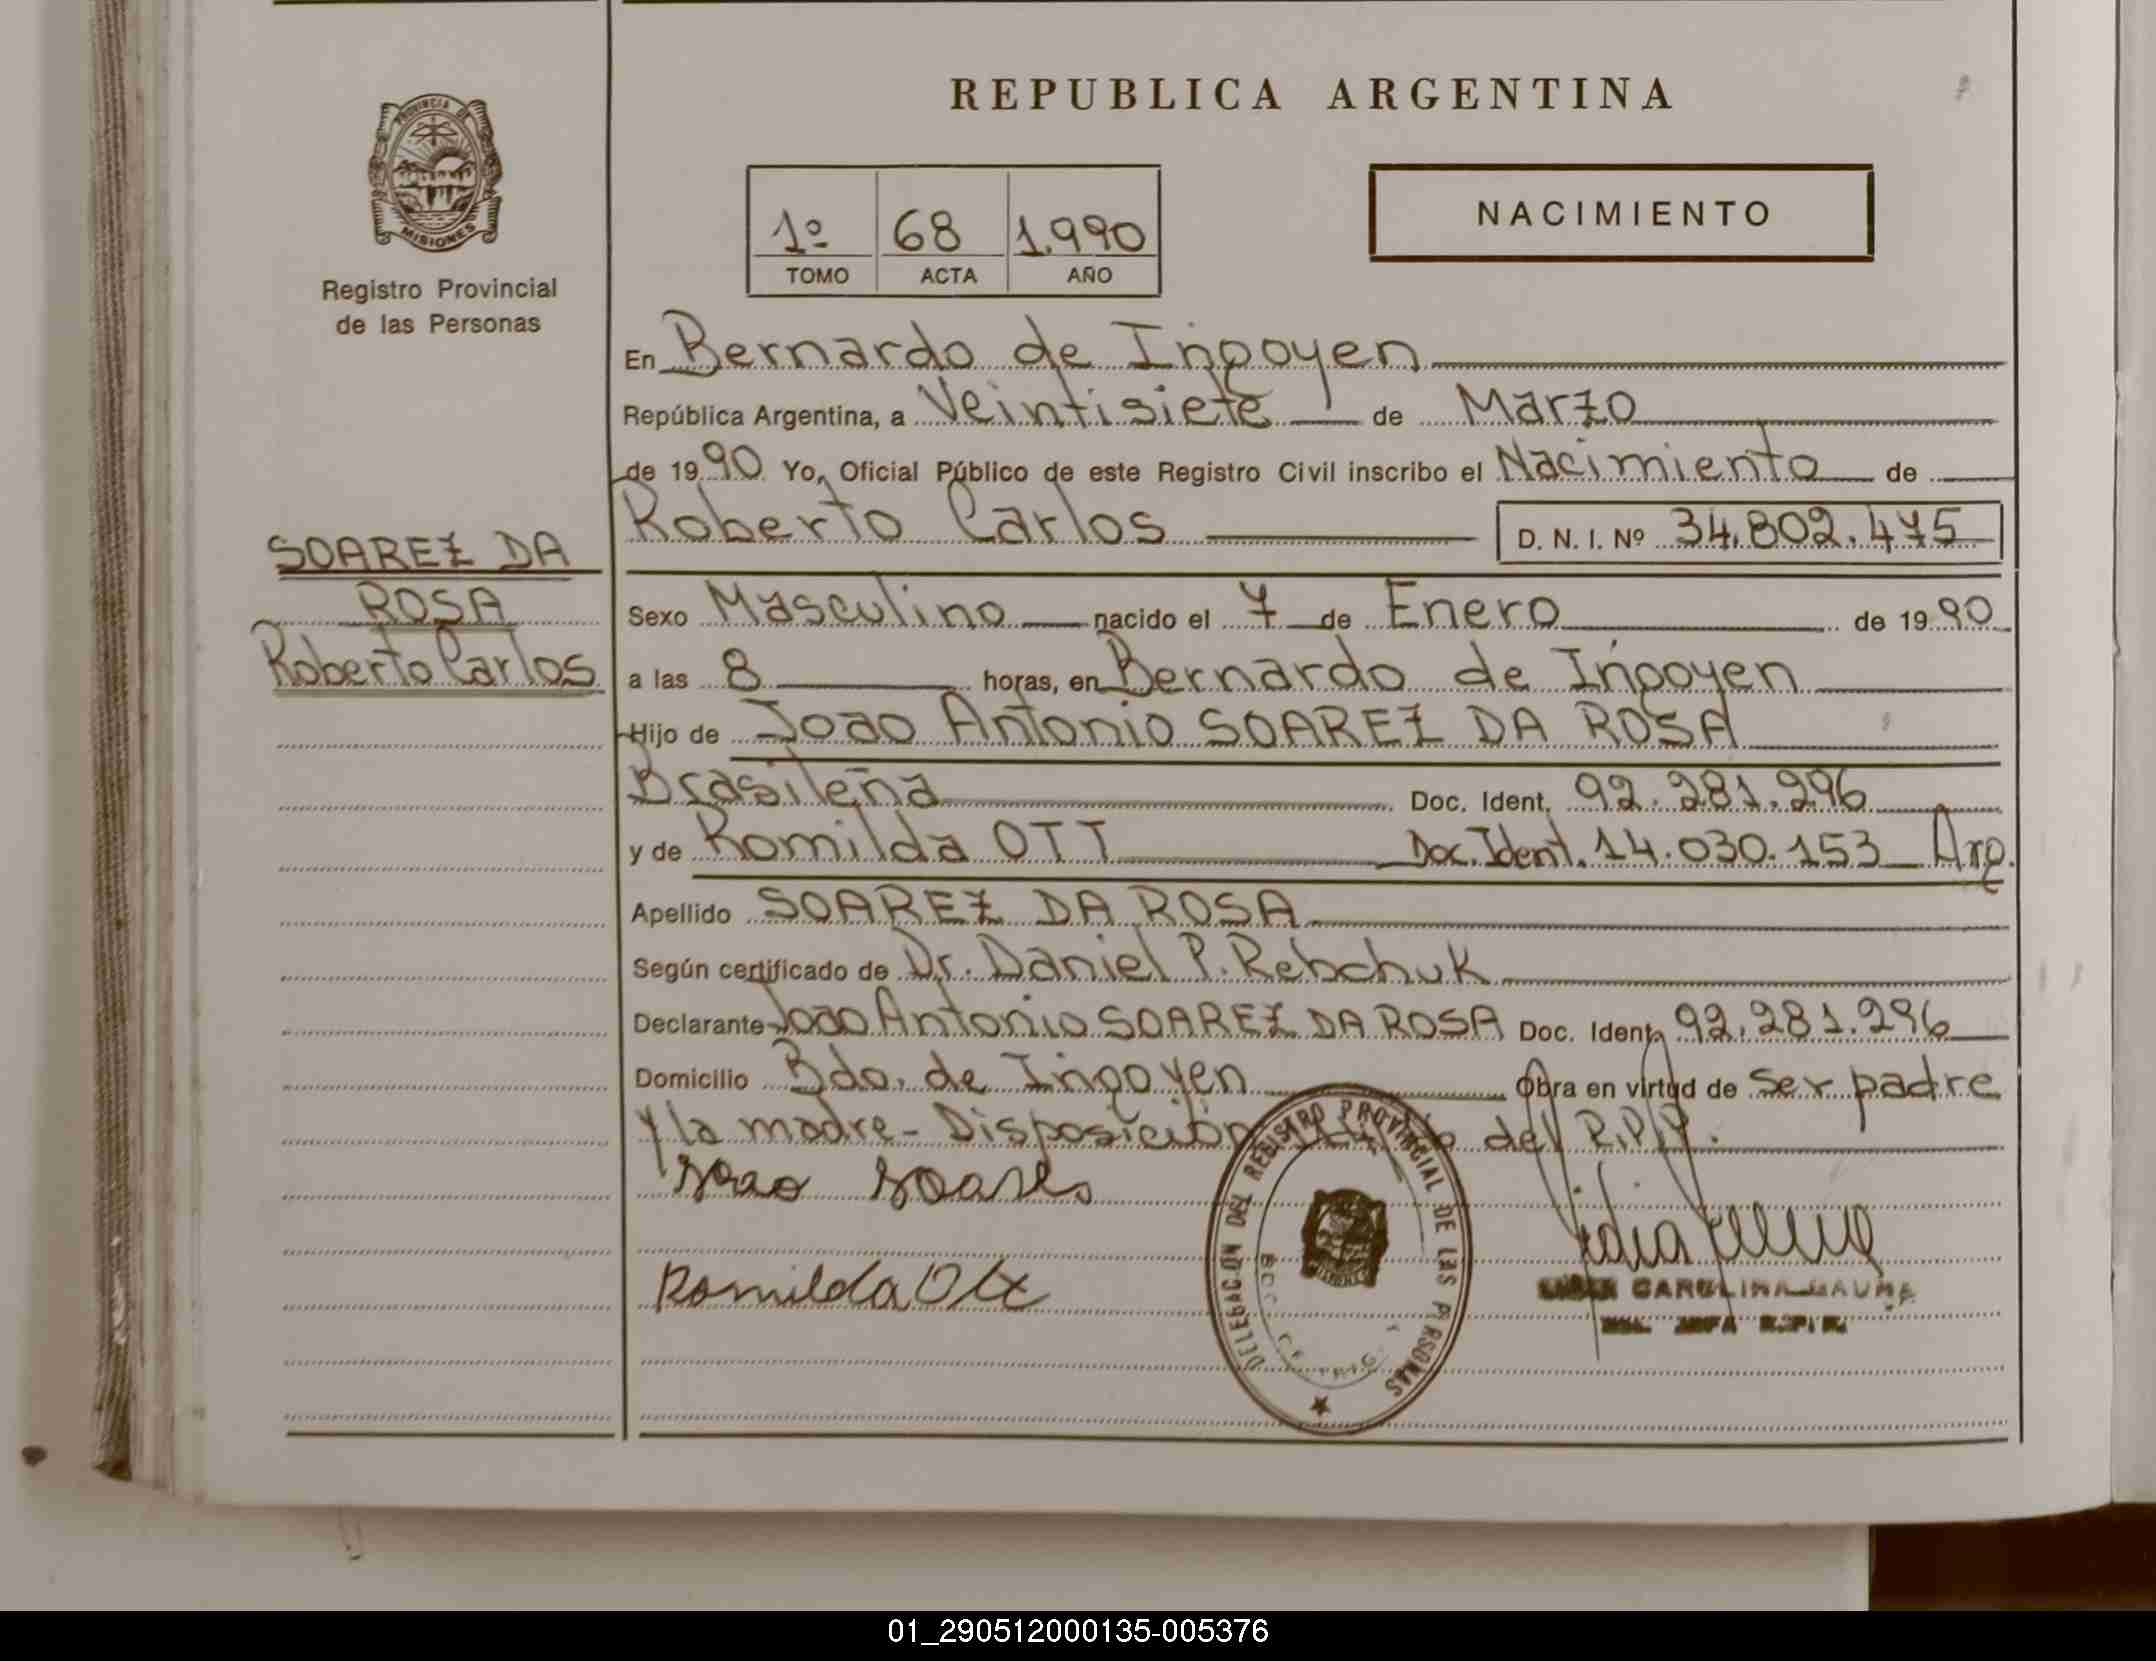 REPUBLICA ARGENTINA
PROVINCIA DE
MISIONES
Registro Provincial
de las Personas
1º 68 1.990
TOMO ACTA AÑO
NACIMIENTO
En Bernardo de Irigoyen
República Argentina, a Veintisiete de Marzo
de 1990 Yo, Oficial Público de este Registro Civil inscribo el Nacimiento de
Roberto Carlos D. N. I. Nº 34.802.475
SOAREZ DA
ROSA
Roberto Carlos
Sexo Masculino nacido el 7 de Enero de 1990
a las 8 horas, en Bernardo de Irigoyen
Hijo de Joao Antonio SOAREZ DA ROSA
Brasileña Doc. Ident. 92.281.296
y de Romilda OTT Doc. Ident. 14.030.153 Arg.
Apellido SOAREZ DA ROSA
Según certificado de Dr. Daniel P. Rebchuk
Declarante Joao Antonio SOAREZ DA ROSA Doc. Ident. 92.281.296
Domicilio Bdo. de Irigoyen Obra en virtud de ser padre
y la madre - Disposición del R.P.P.
Joao Soares
Romilda Ott
DELEGACION DEL REGISTRO PROVINCIAL DE LAS PERSONAS
CAROLINA
01_290512000135-005376